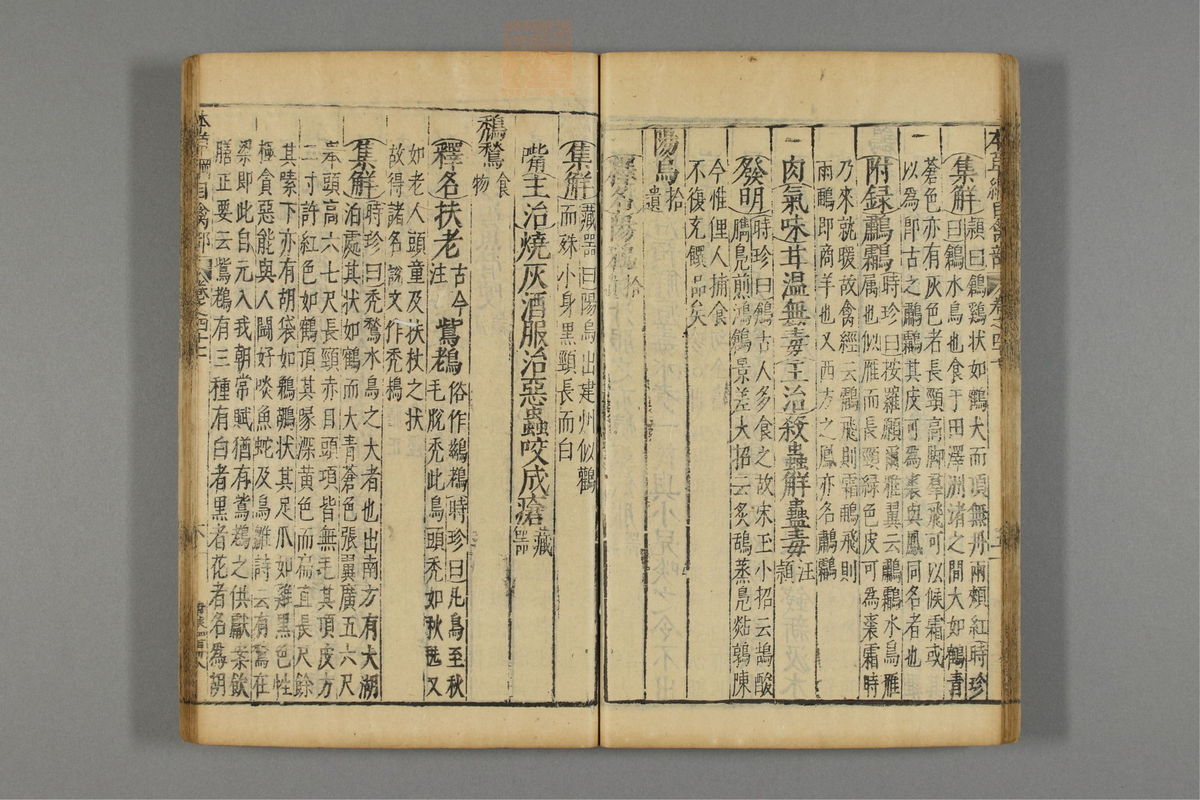 本草綱目禽部 卷之四十七
集解頴曰鶬鷄狀如鶴大而頂無丹兩頰紅時珍
曰鶬水鳥也食于田澤洲渚之間大如鶴青
蒼色亦有灰色者長頸高脚羣飛可以候霜或
以為即古之鷫鸘其皮可為裘與鳳同名者也
附録鷫鸘時珍曰按羅願爾雅翼云鷫鸘水鳥雁
属也似雁而長頸緑色皮可為裘霜時
乃來就暖故禽經云鸘飛則霜鷫飛則
雨鷫即商羊也又西方之鳳亦名鷫鸘
肉氣味甘温無毒主治殺蟲解蠱毒汪頴
發明時珍曰鶬古人多食之故宋玉小招云鵠酸
臇鳧煎鴻鶬景差大招云炙鴰蒸鳧煔鶉陳
今惟俚人捕食
不復充饌品矣
陽烏拾遺
釋名陽鵶拾遺
集解藏器曰陽烏出建州似鸛
而殊小身黑頸長而白
嘴主治燒灰酒服治惡蟲咬成瘡藏器
鵚鶖食物
釋名扶老古今注鴜䳓俗作鶿䳓時珍曰凡鳥至秋
毛脫禿此鳥頭禿如秋毨又
如老人頭童及扶杖之狀
故得諸名說文作禿
集解時珍曰禿鶖水鳥之大者也出南方有大湖
泊處其状如鶴而大青蒼色張翼廣五六尺
舉頭高六七尺長頸赤目頭項皆無毛其頂皮方
二寸許紅色如鶴頂其喙深黄色而扁直長尺餘
其嗉下亦有胡袋如鵜鶘状其足爪如雞黒色性
極貪惡能與人鬬好啖魚蛇及鳥雛詩云有鶖在
梁即此自元入我朝常賦猶有鴜䳓之供獻案飲
膳正要云鴜䳓有三種有白者黒者花者名為胡
本草綱目禽部 卷之四十七